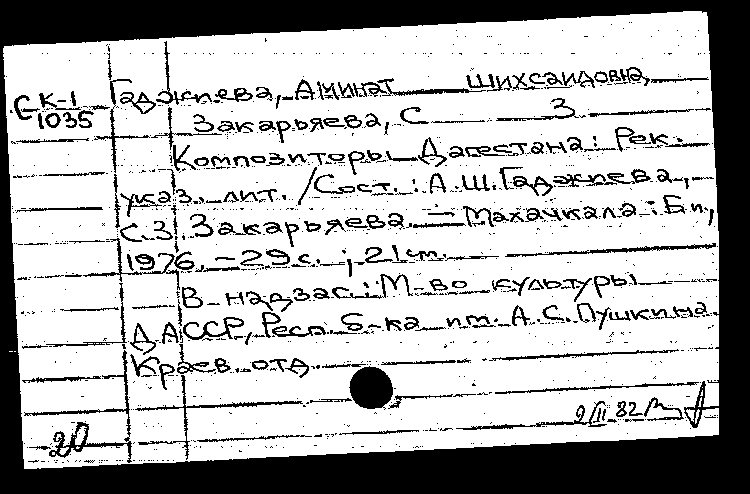 СК-1 Гаджиева, Аминат Шихсаидовна,
1035 Закарьяева, С З
Композиторы Дагестана: Рек.
указ. лит. / Сост.: А.Ш. Гаджиева,
С.З. Закарьяева. – Махачкала: Б.и.,
1976. – 29 с. ; 21 см.
В надзаг.: М-во культуры
ДАССР, Респ. б-ка им. А.С. Пушкина.
Краев. отд.
20 9/II 82